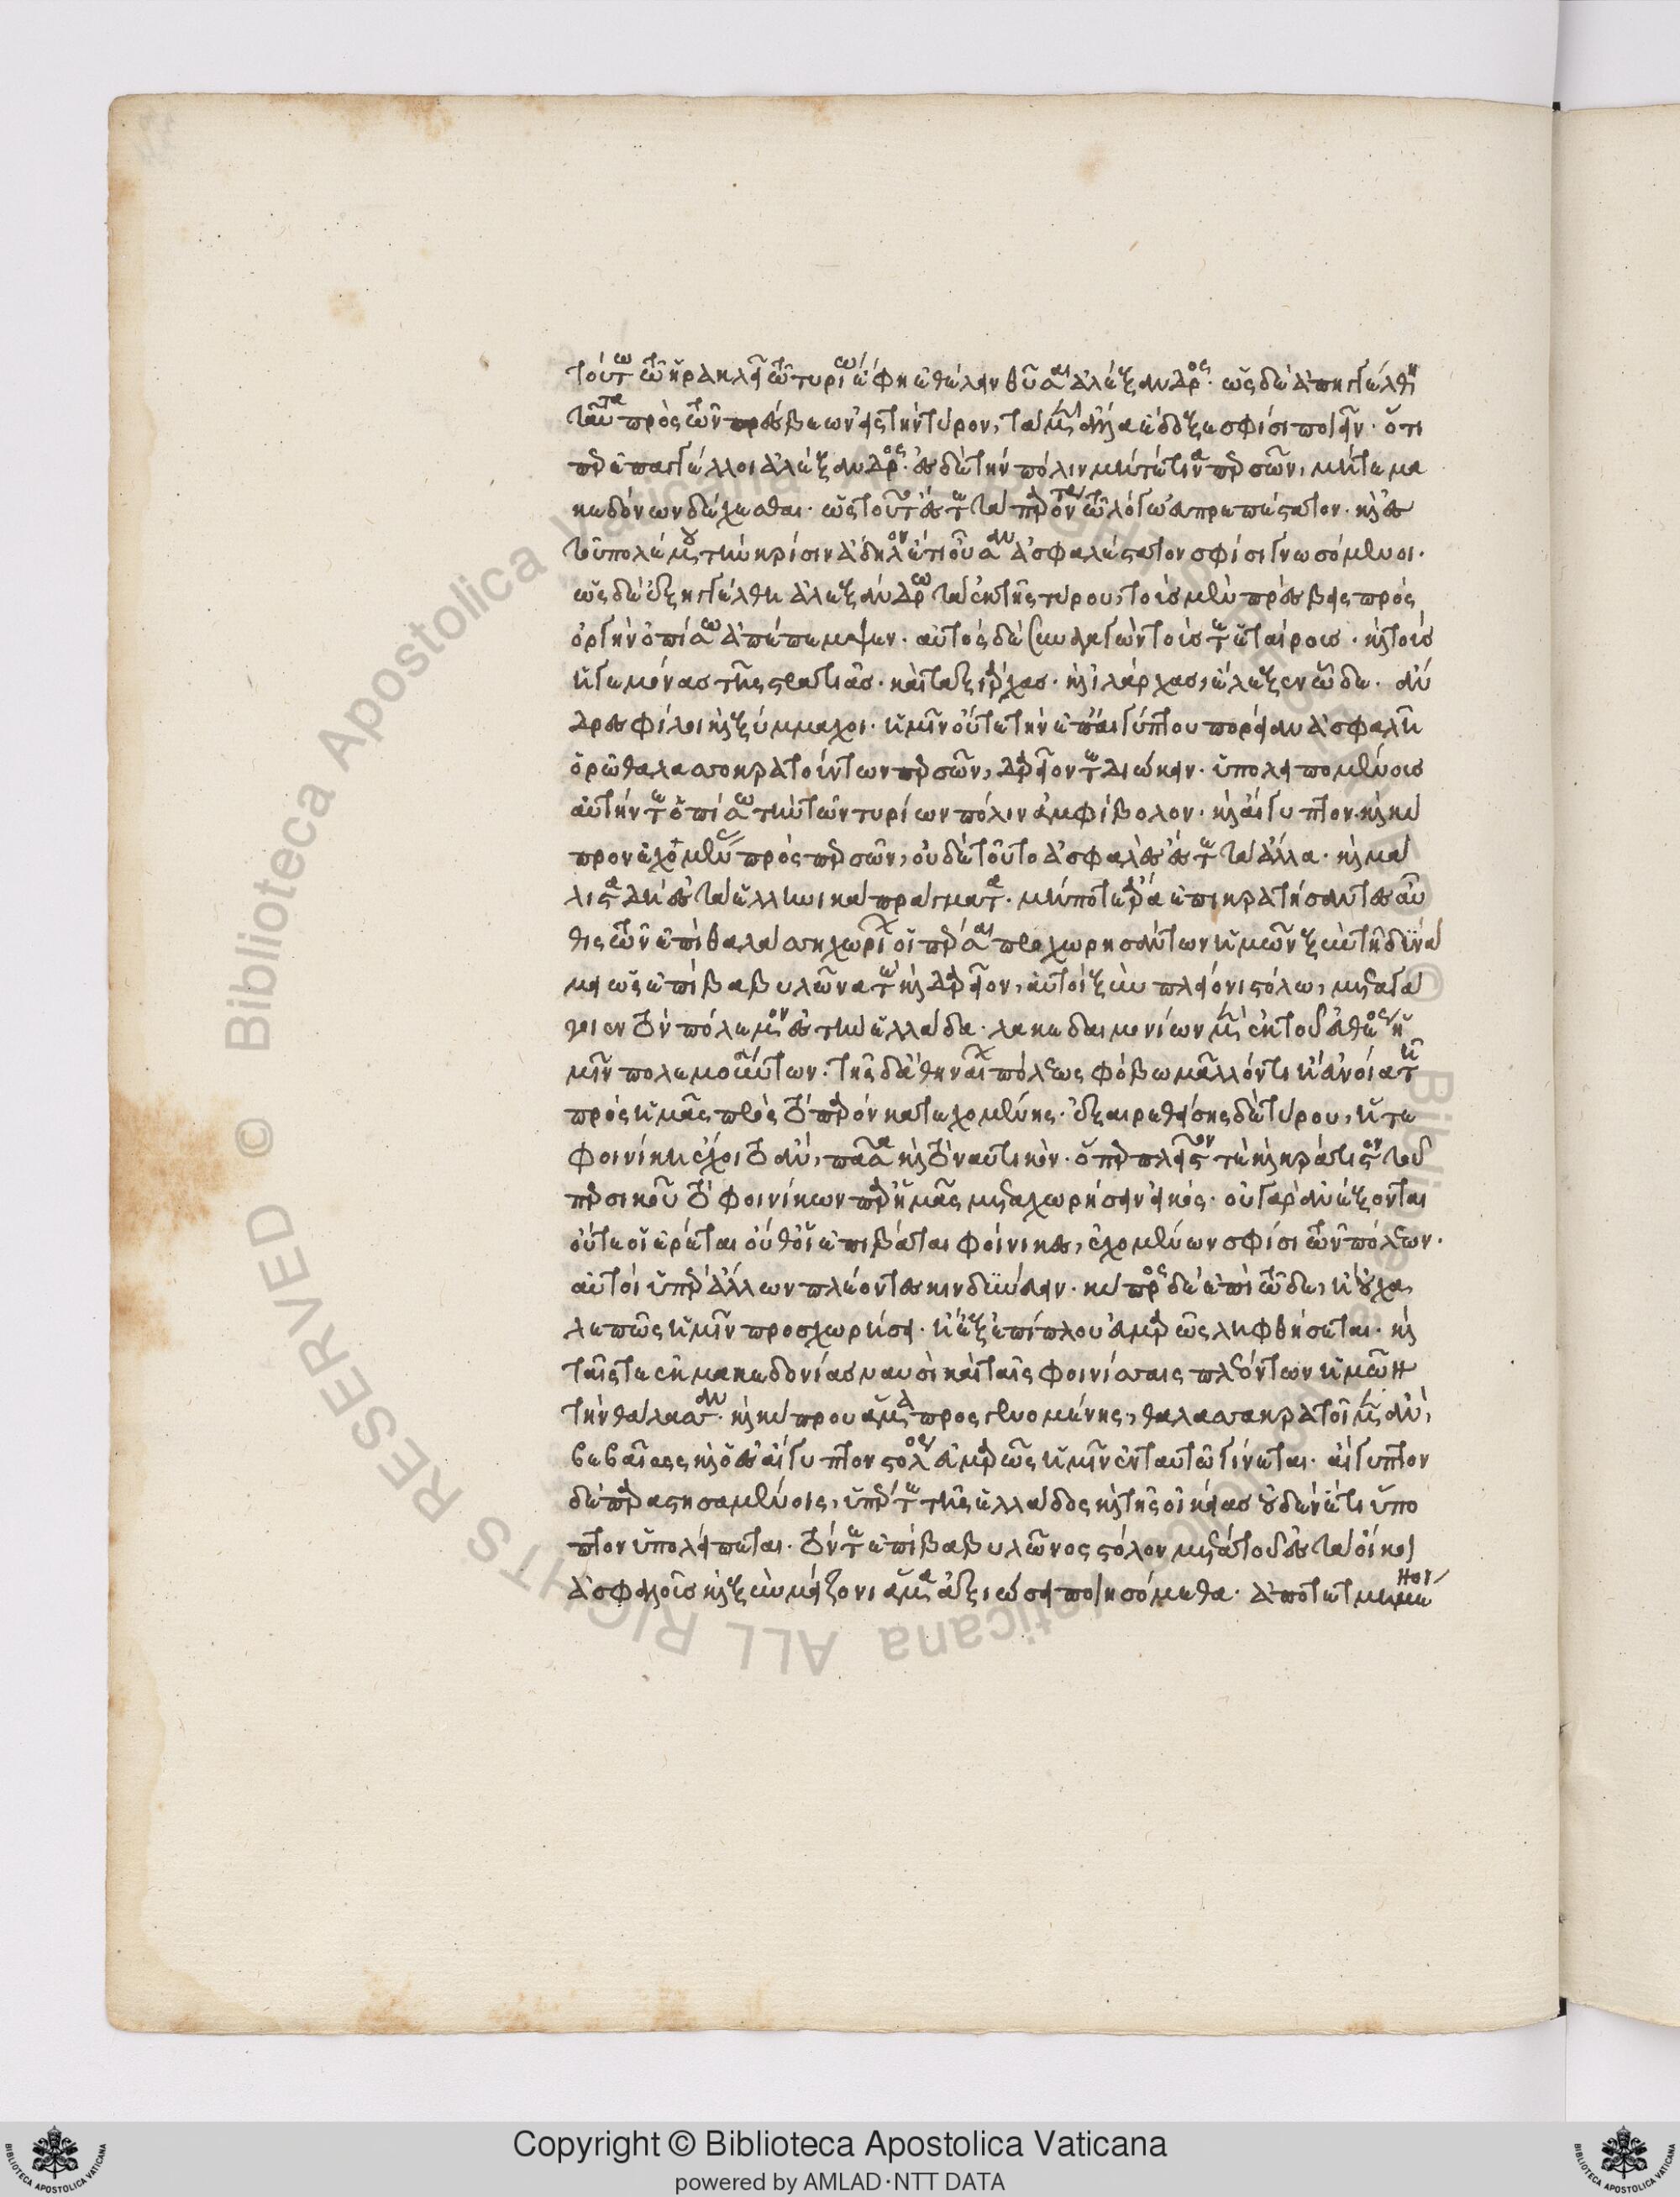 τούτω τῶ ἡρακλεῖ τῶ τυρίω ἔφη ἐθέλειν θῦσαι ἀλέξανδρος. ὡς δὲ ἀπηγγέλθη
ταῦτα πρὸς τῶν πρέσβεων εἰς τὴν τύρον, τὰ μὲν ἄλλα ἔδοξε σφίσι ποιεῖν. ὅτι
περ ἐπαγγέλλοι ἀλέξανδρος. ἐς δὲ τὴν πόλιν μήτέ τινα περσῶν, μήτε μα
κεδόνων δέχεσθαι. ὡς τοῦτο ἔς τε τὰ παρόντα τῶ λόγω εὐπρεπέστατον. καὶ ἐς
τοῦ πολέμου τὴν κρίσιν ἄδηλον ἔτι οὖσαν ἀσφαλέστατον σφίσι γνωσόμενοι.
ὡς δὲ ἐξηγγέλθη ἀλεξάνδρω τὰ ἐκ τῆς τύρου, τοὺς μὲν πρέσβεις πρὸς
ὀργὴν ὀπίσω ἀπέπεμψεν. αὐτὸς δὲ συναγαγὼν τούς τε ἑταίρους. καὶ τοὺς
ἡγεμόνας τῆς στρατιᾶς. καὶ ταξιάρχας. καὶ ἰλάρχας, ἔλεξεν ὧδε. ἄν
δρες φίλοι καὶ ξύμμαχοι. ἡμῖν οὔτε τὴν ἐπ' αἰγύπτου πορείαν ἀσφαλῆ
ὁρῶ θαλασσοκρατούντων περσῶν, δαρεῖον τε διώκειν. ὑπολειπομένους
αὐτήν τε ὀπίσω τὴν τῶν τυρίων πόλιν ἀμφίβολον. καὶ αἴγυπτον. καὶ κύ
προν ἐχομένας πρὸς περσῶν, οὐδὲ τοῦτο ἀσφαλὲς ἔς τε τὰ ἄλλα. καὶ μά
λιστα δὴ ἐς τὰ ἑλληνικὰ πράγματα. μήποτε ἄρα ἐπικρατήσαντες αὖ
θις τῶν ἐπὶ θαλάσση χωρίων οἱ πέρσαι προχωρησάντων ἡμῶν ξὺν τῆ δυνά
μει ὡς ἐπὶ βαβυλῶνα τε καὶ δαρεῖον, αὐτοὶ ξὺν πλείονι στόλω, μεταγά
γοιεν τὸν πόλεμον ἐς τὴν ἑλλάδα. λακεδαιμονίων μὲν ἐκ τοῦ εὐθέος ἡ
μῖν πολεμούντων. τῆς δὲ ἀθηναίων πόλεως φόβω μᾶλλόν τι ἢ εὐνοία τῆ
πρὸς ἡμᾶς πρὸς τὸ παρὸν κατεχομένης. ἐξαιρεθείσης δὲ τύρου, ἥ τε
φοινίκη ἔχοιτο ἂν, πᾶσα καὶ τὸ ναυτικὸν. ὅπερ πλεῖστον τὲ καὶ κράτιστον τοῦ
περσικοῦ τὸ φοινίκων παρ' ἡμᾶς μεταχωρήσειν εἰκός. οὐ γὰρ ἀνέξονται
οὔτε οἱ ἐρέται οὔθ' οἱ ἐπιβάται φοίνικες, ἐχομένων σφίσι τῶν πόλεων.
αὐτοὶ ὑπὲρ ἄλλων πλέοντες κινδυνεύειν. κύπρος δὲ ἐπὶ τῶδε, ἢ οὐ χα
λεπῶς ἡμῖν προσχωρήσει. ἢ ἐξ ἐπίπλου εὐμαρῶς ληφθήσεται. καὶ
ταῖς τε ἐκ μακεδονίας ναυσὶ καὶ ταῖς φοινίσσαις πλεόντων ἡμῶν
τὴν θάλασσαν. καὶ κύπρου ἅμα προσγενομένης, θαλασσοκρατοῖμεν ἂν,
βεβαίως καὶ ὁ ἐς αἴγυπτον στόλος εὐμαρῶς ἡμῖν ἐν ταυτῶ γίνεται. αἴγυπτον
δὲ παραστησαμένοις, ὑπέρ τε τῆς ἑλλάδος καὶ τῆς οἰκείας οὐδὲν ἔτι ὕπο
πτον ὑπολείπεται. τόν τε ἐπὶ βαβυλῶνος στόλον μετὰ τοῦ ἐς τὰ οἴκοι
ἀσφαλοῦς καὶ ξὺν μείζονι ἅμα ἀξιώσει ποιησόμεθα. ἀποτετμημένοι